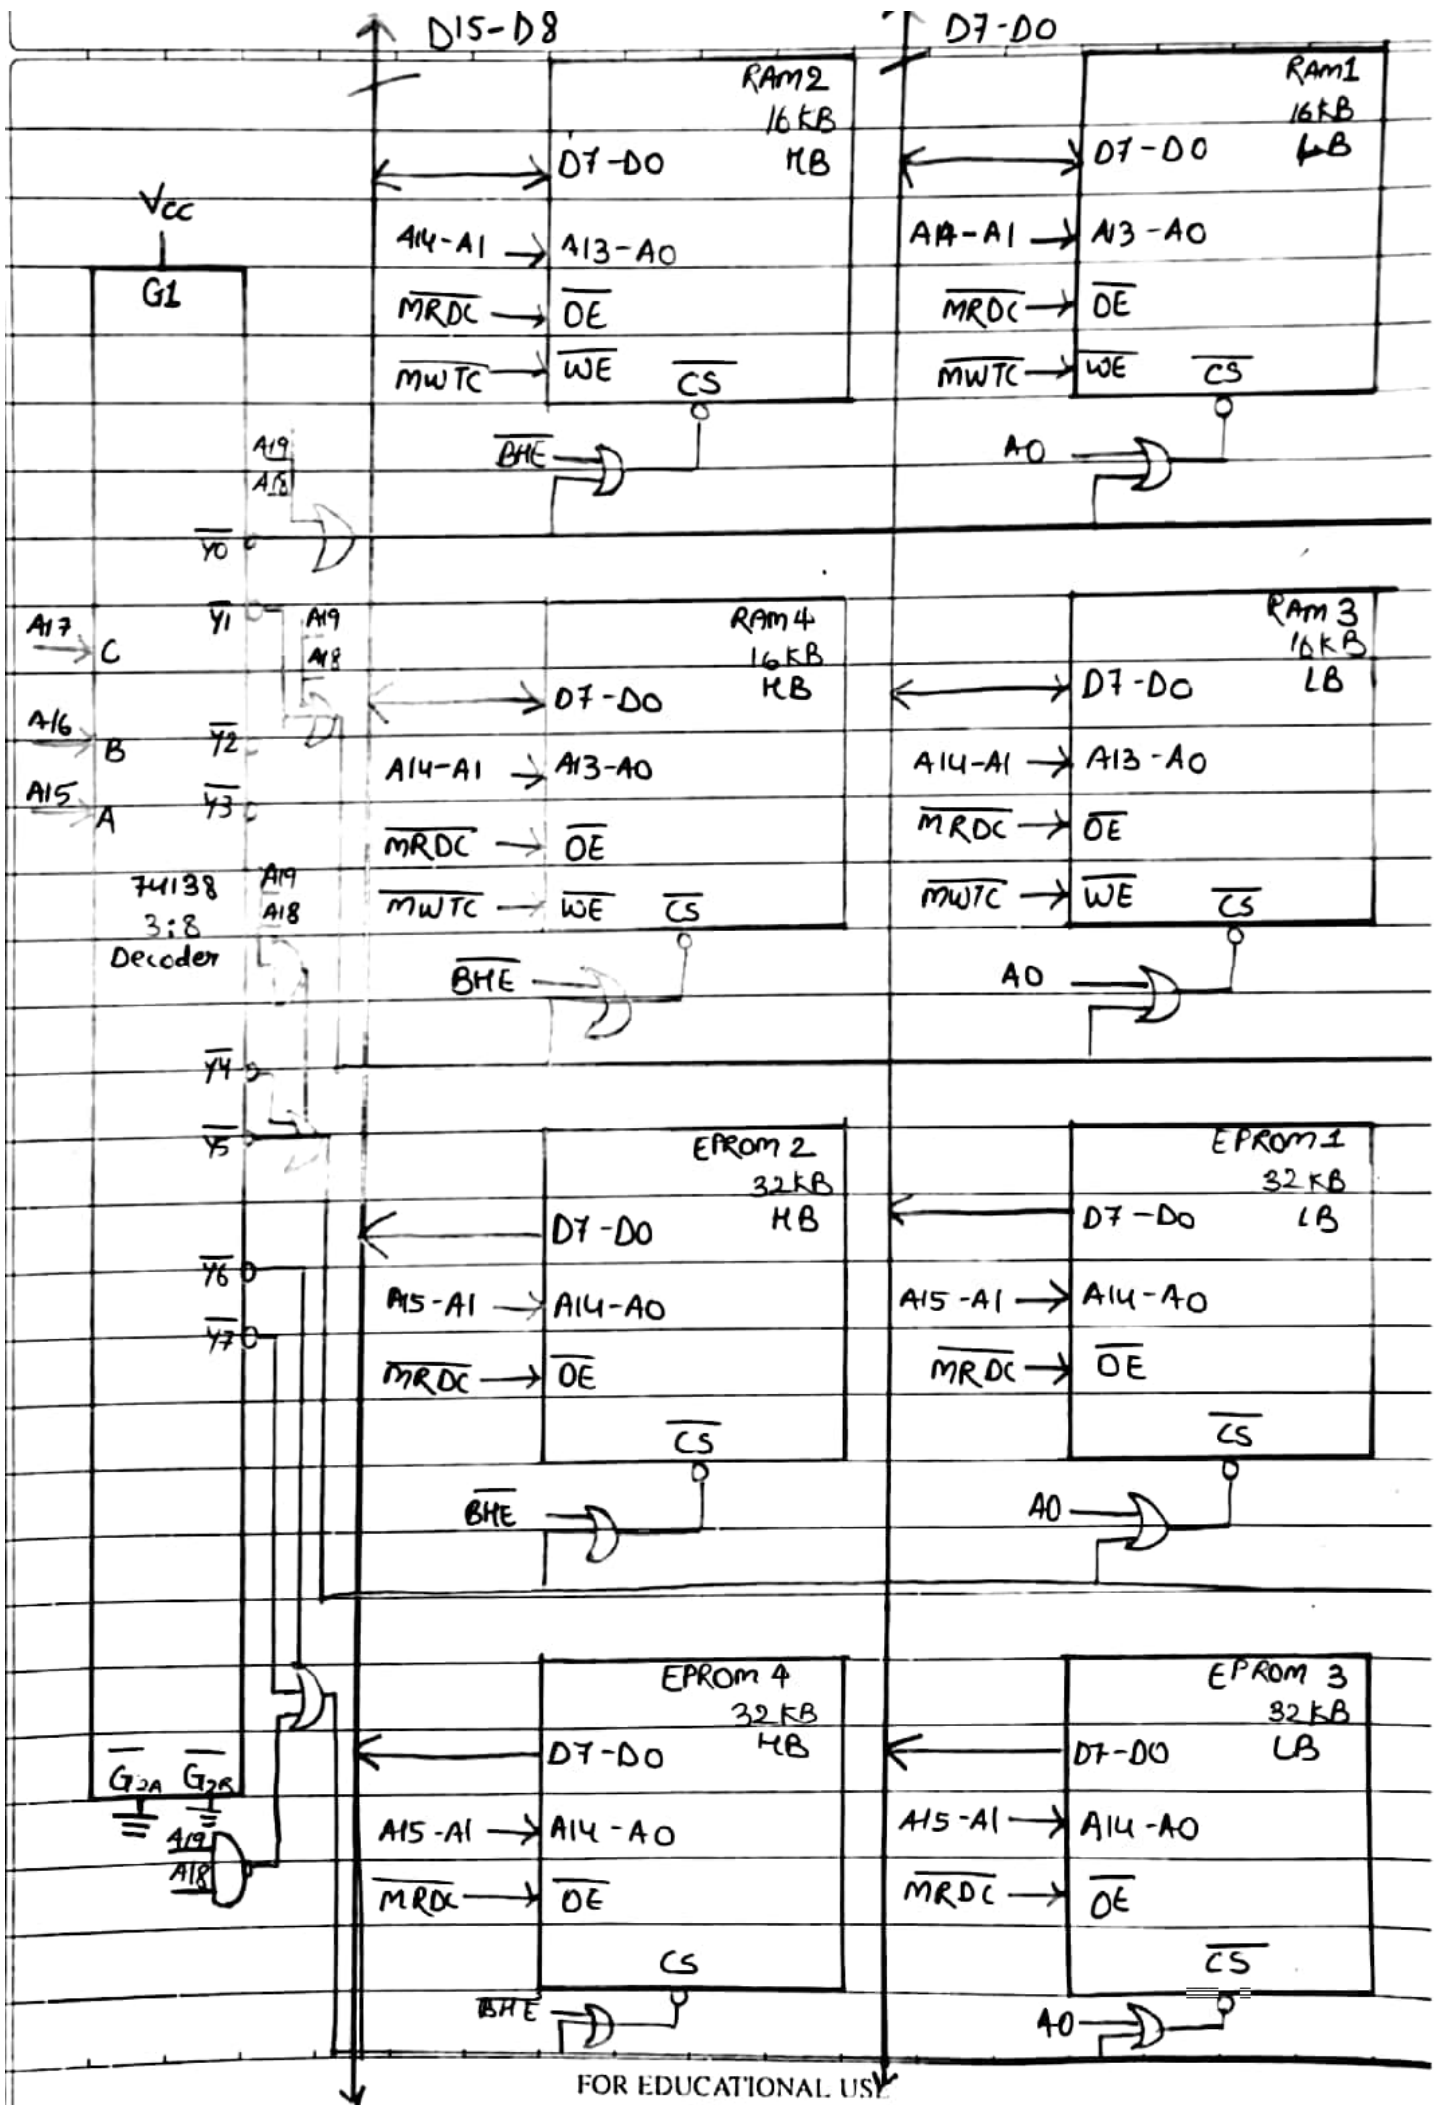 D15-D8
D7-D0
RAM2
16KB
HB
D7-D0
A14-A1
A13-A0
MRDC
OE
MWTC
WE
CS
BHE
RAM1
16KB
LB
D7-D0
A14-A1
A13-A0
MRDC
OE
MWTC
WE
CS
A0
Vcc
G1
A19
A18
Y0
Y1
A19
A18
A17
C
A16
B
Y2
A15
A
Y3
74138
3:8
Decoder
A19
A18
Y4
Y5
Y6
Y7
G2A
G2B
A19
A18
RAM4
16KB
HB
D7-D0
A14-A1
A13-A0
MRDC
OE
MWTC
WE
CS
BHE
RAM 3
16KB
LB
D7-D0
A14-A1
A13-A0
MRDC
OE
MWTC
WE
CS
A0
EPROM 2
32KB
HB
D7-D0
A15-A1
A14-A0
MRDC
OE
CS
BHE
EPROM1
32KB
LB
D7-D0
A15-A1
A14-A0
MRDC
OE
CS
A0
EPROM 4
32KB
HB
D7-D0
A15-A1
A14-A0
MRDC
OE
CS
BHE
EPROM 3
32KB
LB
D7-D0
A15-A1
A14-A0
MRDC
OE
CS
A0
FOR EDUCATIONAL USE